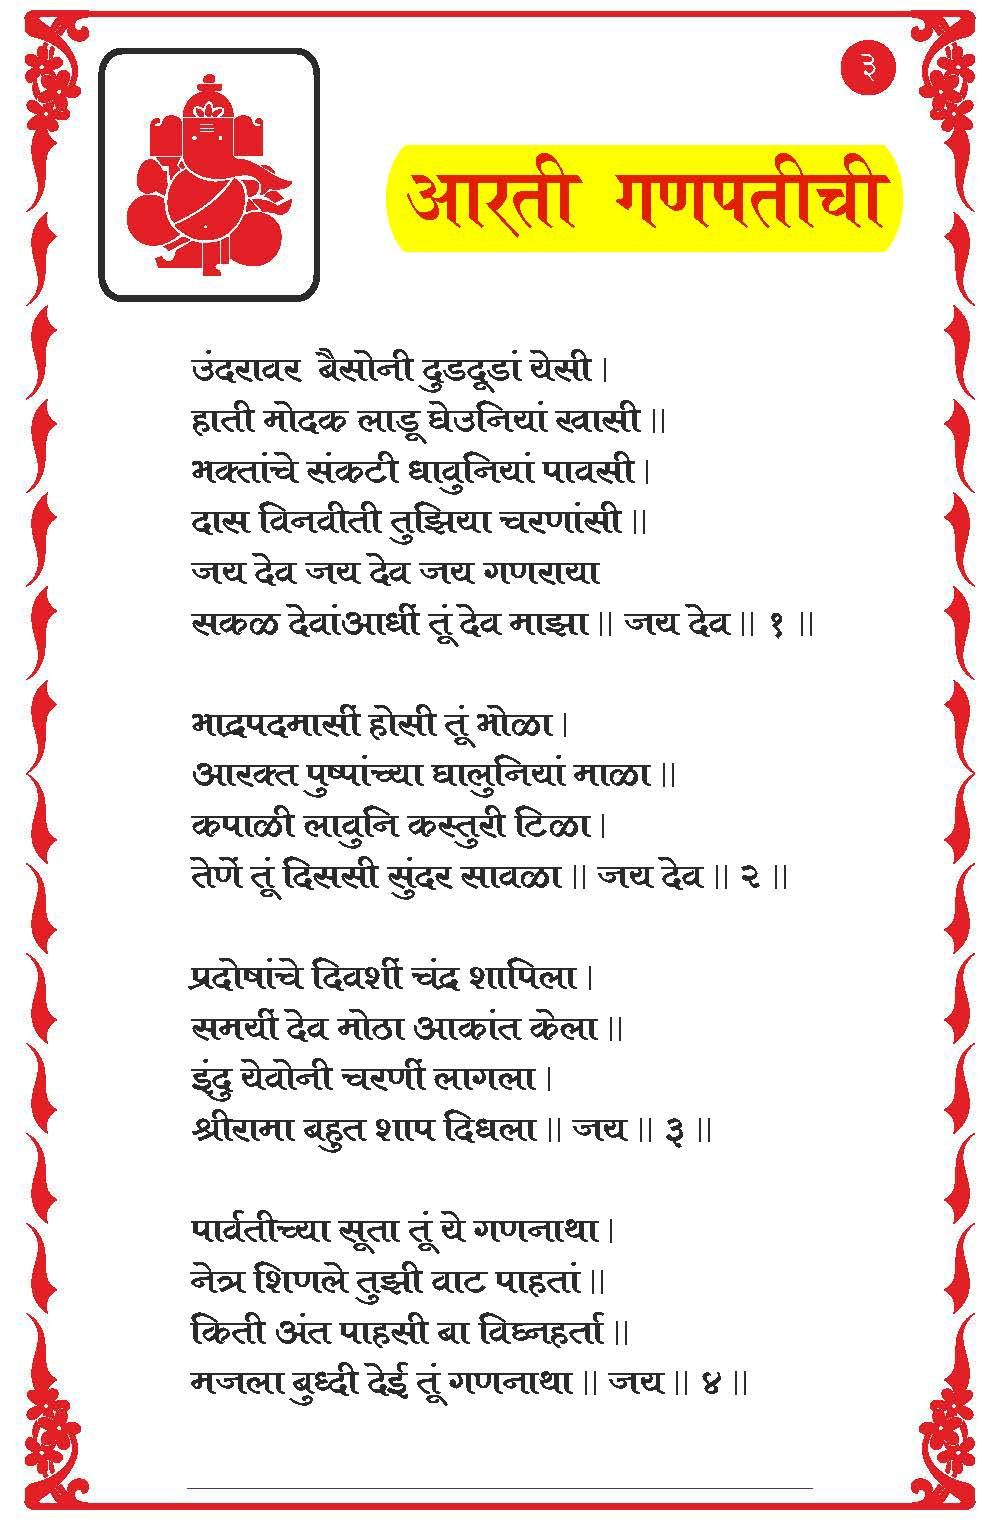 ३
आरती गणपतीची
उंदरावर बैसोनी दुडदूडां येसी |
हाती मोदक लाडू घेउनियां खासी ||
भक्तांचे संकटी धावुनियां पावसी |
दास विनवीती तुझिया चरणांसी ||
जय देव जय देव जय गणराया
सकळ देवांआधीं तूं देव माझा || जय देव || १ ||
भाद्रपदमासीं होसी तूं भोळा |
आरक्त पुष्पांच्या घालुनियां माळा ||
कपाळी लावुनि कस्तुरी टिळा |
तेणें तूं दिससी सुंदर सावळा || जय देव || २ ||
प्रदोषांचे दिवशीं चंद्र शापिला |
समयीं देव मोठा आकांत केला ||
इंदु येवोनी चरणीं लागला |
श्रीरामा बहुत शाप दिधला || जय || ३ ||
पार्वतीच्या सूता तूं ये गणनाथा |
नेत्र शिणले तुझी वाट पाहतां ||
किती अंत पाहसी बा विघ्नहर्ता ||
मजला बुध्दी देई तूं गणनाथा || जय || ४ ||